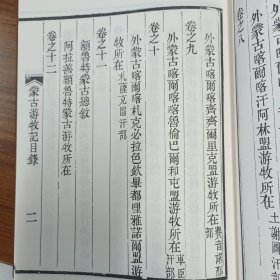 卷之八
外蒙古喀爾喀汗阿林盟游牧所在土謝圖汗部
卷之九
外蒙古喀爾喀齊齊爾里克盟游牧所在賽音諾顏部
外蒙古喀爾喀喀魯倫巴爾和屯盟游牧所在車臣汗部
卷之十
外蒙古喀爾喀札克必拉色欽畢都哩雅諾爾盟游
牧所在札薩克圖汗部
卷之十一
額魯特蒙古總敘
卷之十二
阿拉善額魯特蒙古游牧所在
蒙古游牧記目錄
二